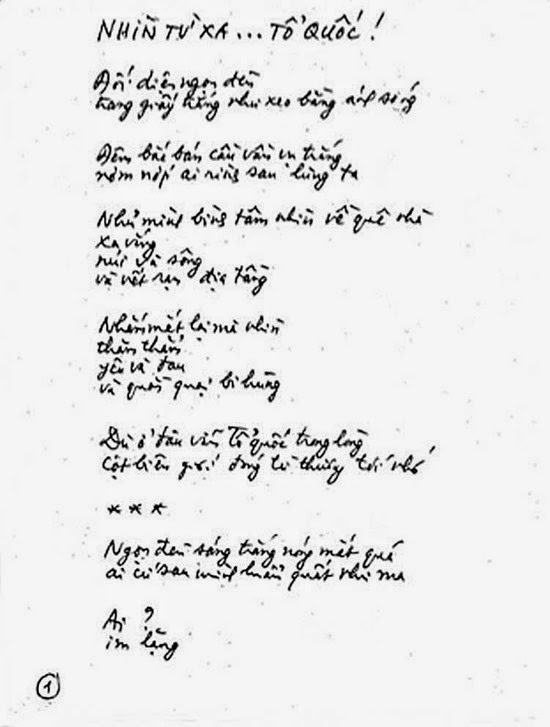 NHÌN TỪ XA ... TỔ QUỐC !
Đối diện ngọn đèn
trang giấy trắng như xeo bằng ánh sáng
Đêm bắc bán cầu vần vụ trắng
nơm nớp ai rình sau lưng ta
Nhủ mình bình tâm nhìn về quê nhà
xa vắng
núi và sông
và vết rạn địa tầng
Nhắm mắt lại mà nhìn
thăm thẳm
yêu và đau
và quằn quại bi hùng
Dù ở đâu vẫn Tổ quốc trong lòng
cột biên giới đóng từ thương tới nhớ
* * *
Ngọn đèn sáng trắng nóng mắt quá
ai cứ sau mình lẩn quất như ma
Ai ?
im lặng
1